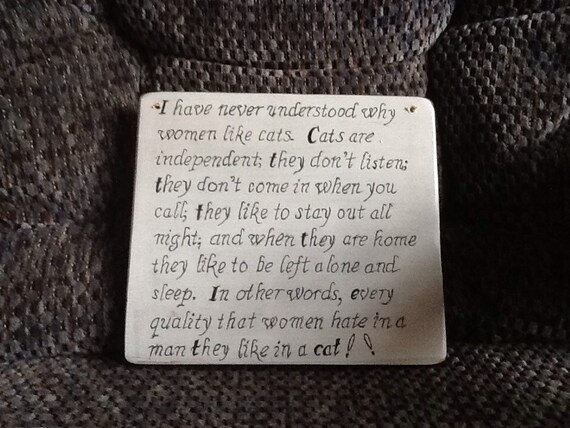 I have never understood why
women like cats. Cats are
independent; they don't listen;
they don't come in when you
call; they like to stay out all
night; and when they are home
they like to be left alone and
sleep. In other words, every
quality that women hate in a
man they like in a cat!!